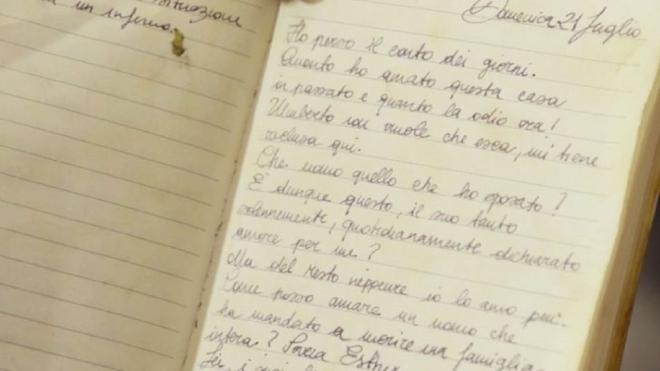 situazione
un inferno.
Domenica 21 luglio
Ho perso il conto dei giorni.
Quanto ho amato questa casa
in passato e quanto la odio ora!
Umberto non vuole che esca, mi tiene
reclusa qui.
Che uomo è quello che ho sposato?
E' dunque questo, il suo tanto
solennemente, quotidianamente dichiarato
amore per me?
Ma del resto neppure io lo amo più.
Come posso amare un uomo che
ha mandato a morire una famiglia
intera? Povera Esther